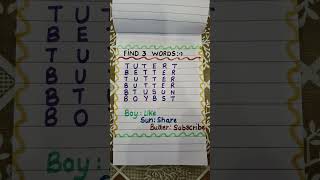 FIND 3 WORDS:-
T U T E R T
B E T T E R
T U T T E R
B U T T E R
B T U S U N
B O Y B S T
Boy: Like
Sun: Share
Butter: Subscribe